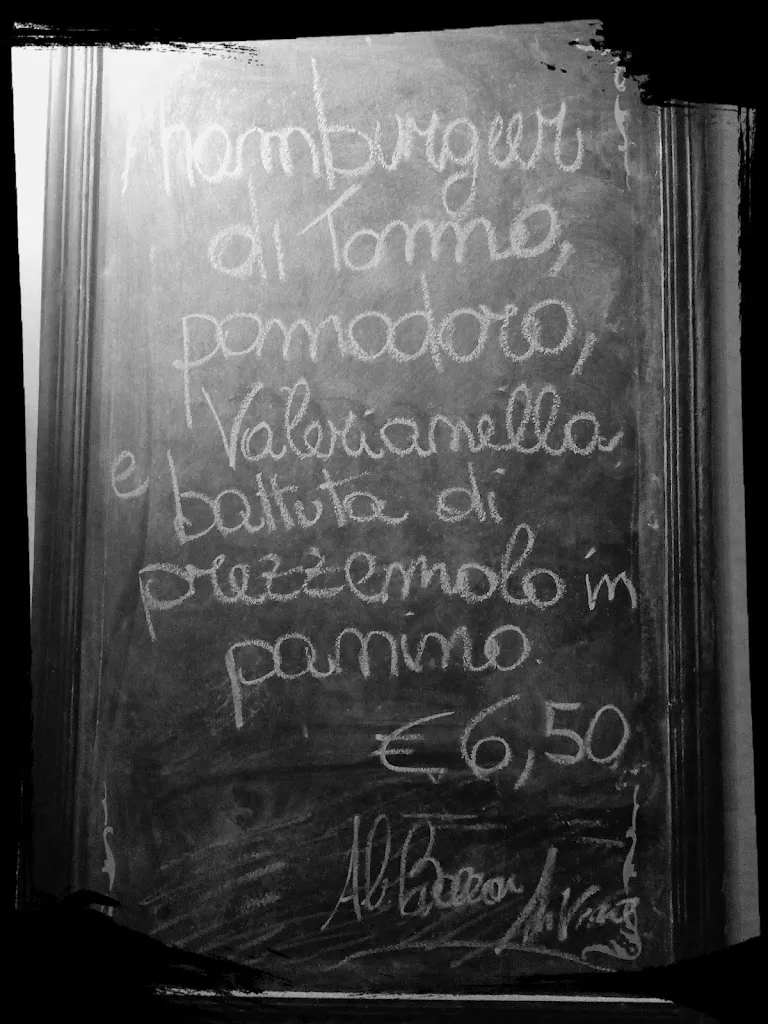 hamburger
di Tonno,
pomodoro,
Valerianella
e battuta di
prezzemolo in
panino.
€ 6,50
Al